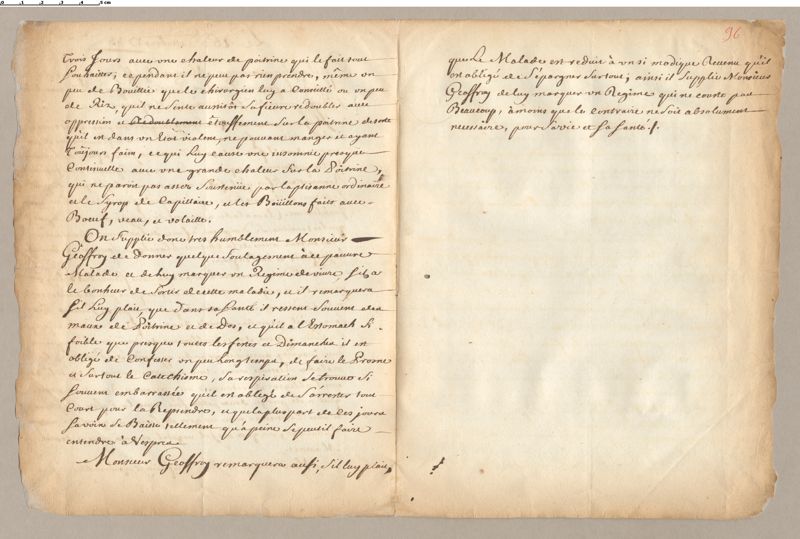 0 1 2 3 4 5 cm
96
trois jours avec une chaleur de poitrine qui le fait tout
souhaitter, cependant il ne peut pas rien prendre, même un
peu de Bouillie que le chirurgien luy a Conseillé ou un peu
de Riz, qu'il ne sente aussitôt sa fievre redoubler avec
oppression et Redoublement étouffement sur la poitrine de sorte
qu'il est dans un Etat violent, ne pouvant manger et ayant
Toujours faim, ce qui luy cause une insomnie presque
Continuelle avec une grande chaleur sur la Poitrine,
qui ne paroit pas assez soutenüe par la ptisanne ordinaire
et le syrop de Capillaire, et les Boüillons faits avec
Boeuf, veau, et volaille.
On supplie donc tres humblement Monsieur
Geoffroy de Donner quelque soulagement à ce pauvre
Malade et de luy marquer un Regime de vivre s'il a
le bonheur de sortir de cette maladie, et il remarquera
s'il luy plait, que dans sa santé il ressent souvent des
maux de Poitrine et de Dos, et qu'il a l'Estomach si
foible que presque toutes les festes et Dimanches il est
obligé de Confesser un peu longtemps, de faire le Prosne
et surtout le Catechisme, sa respiration se trouve si
souvent embarrassée qu'il est obligé de s'arrester tout
Court pour la Reprendre, et que la plus part de ces jours
sa voix se Baisse tellement qu'à peine se peut il faire
entendre à Vespres
Monsieur Geoffroy remarquera aussi, s'il luy plait,
que Le Malade est reduit à un si modique Revenu qu'il
est obligé de s'épargner surtout, ainsi il supplie Monsieur
Geoffroy de luy marquer un Regime qui ne coute pas
Beaucoup, à moins que le contraire ne soit absolument
necessaire, pour sa vie et sa santé./.